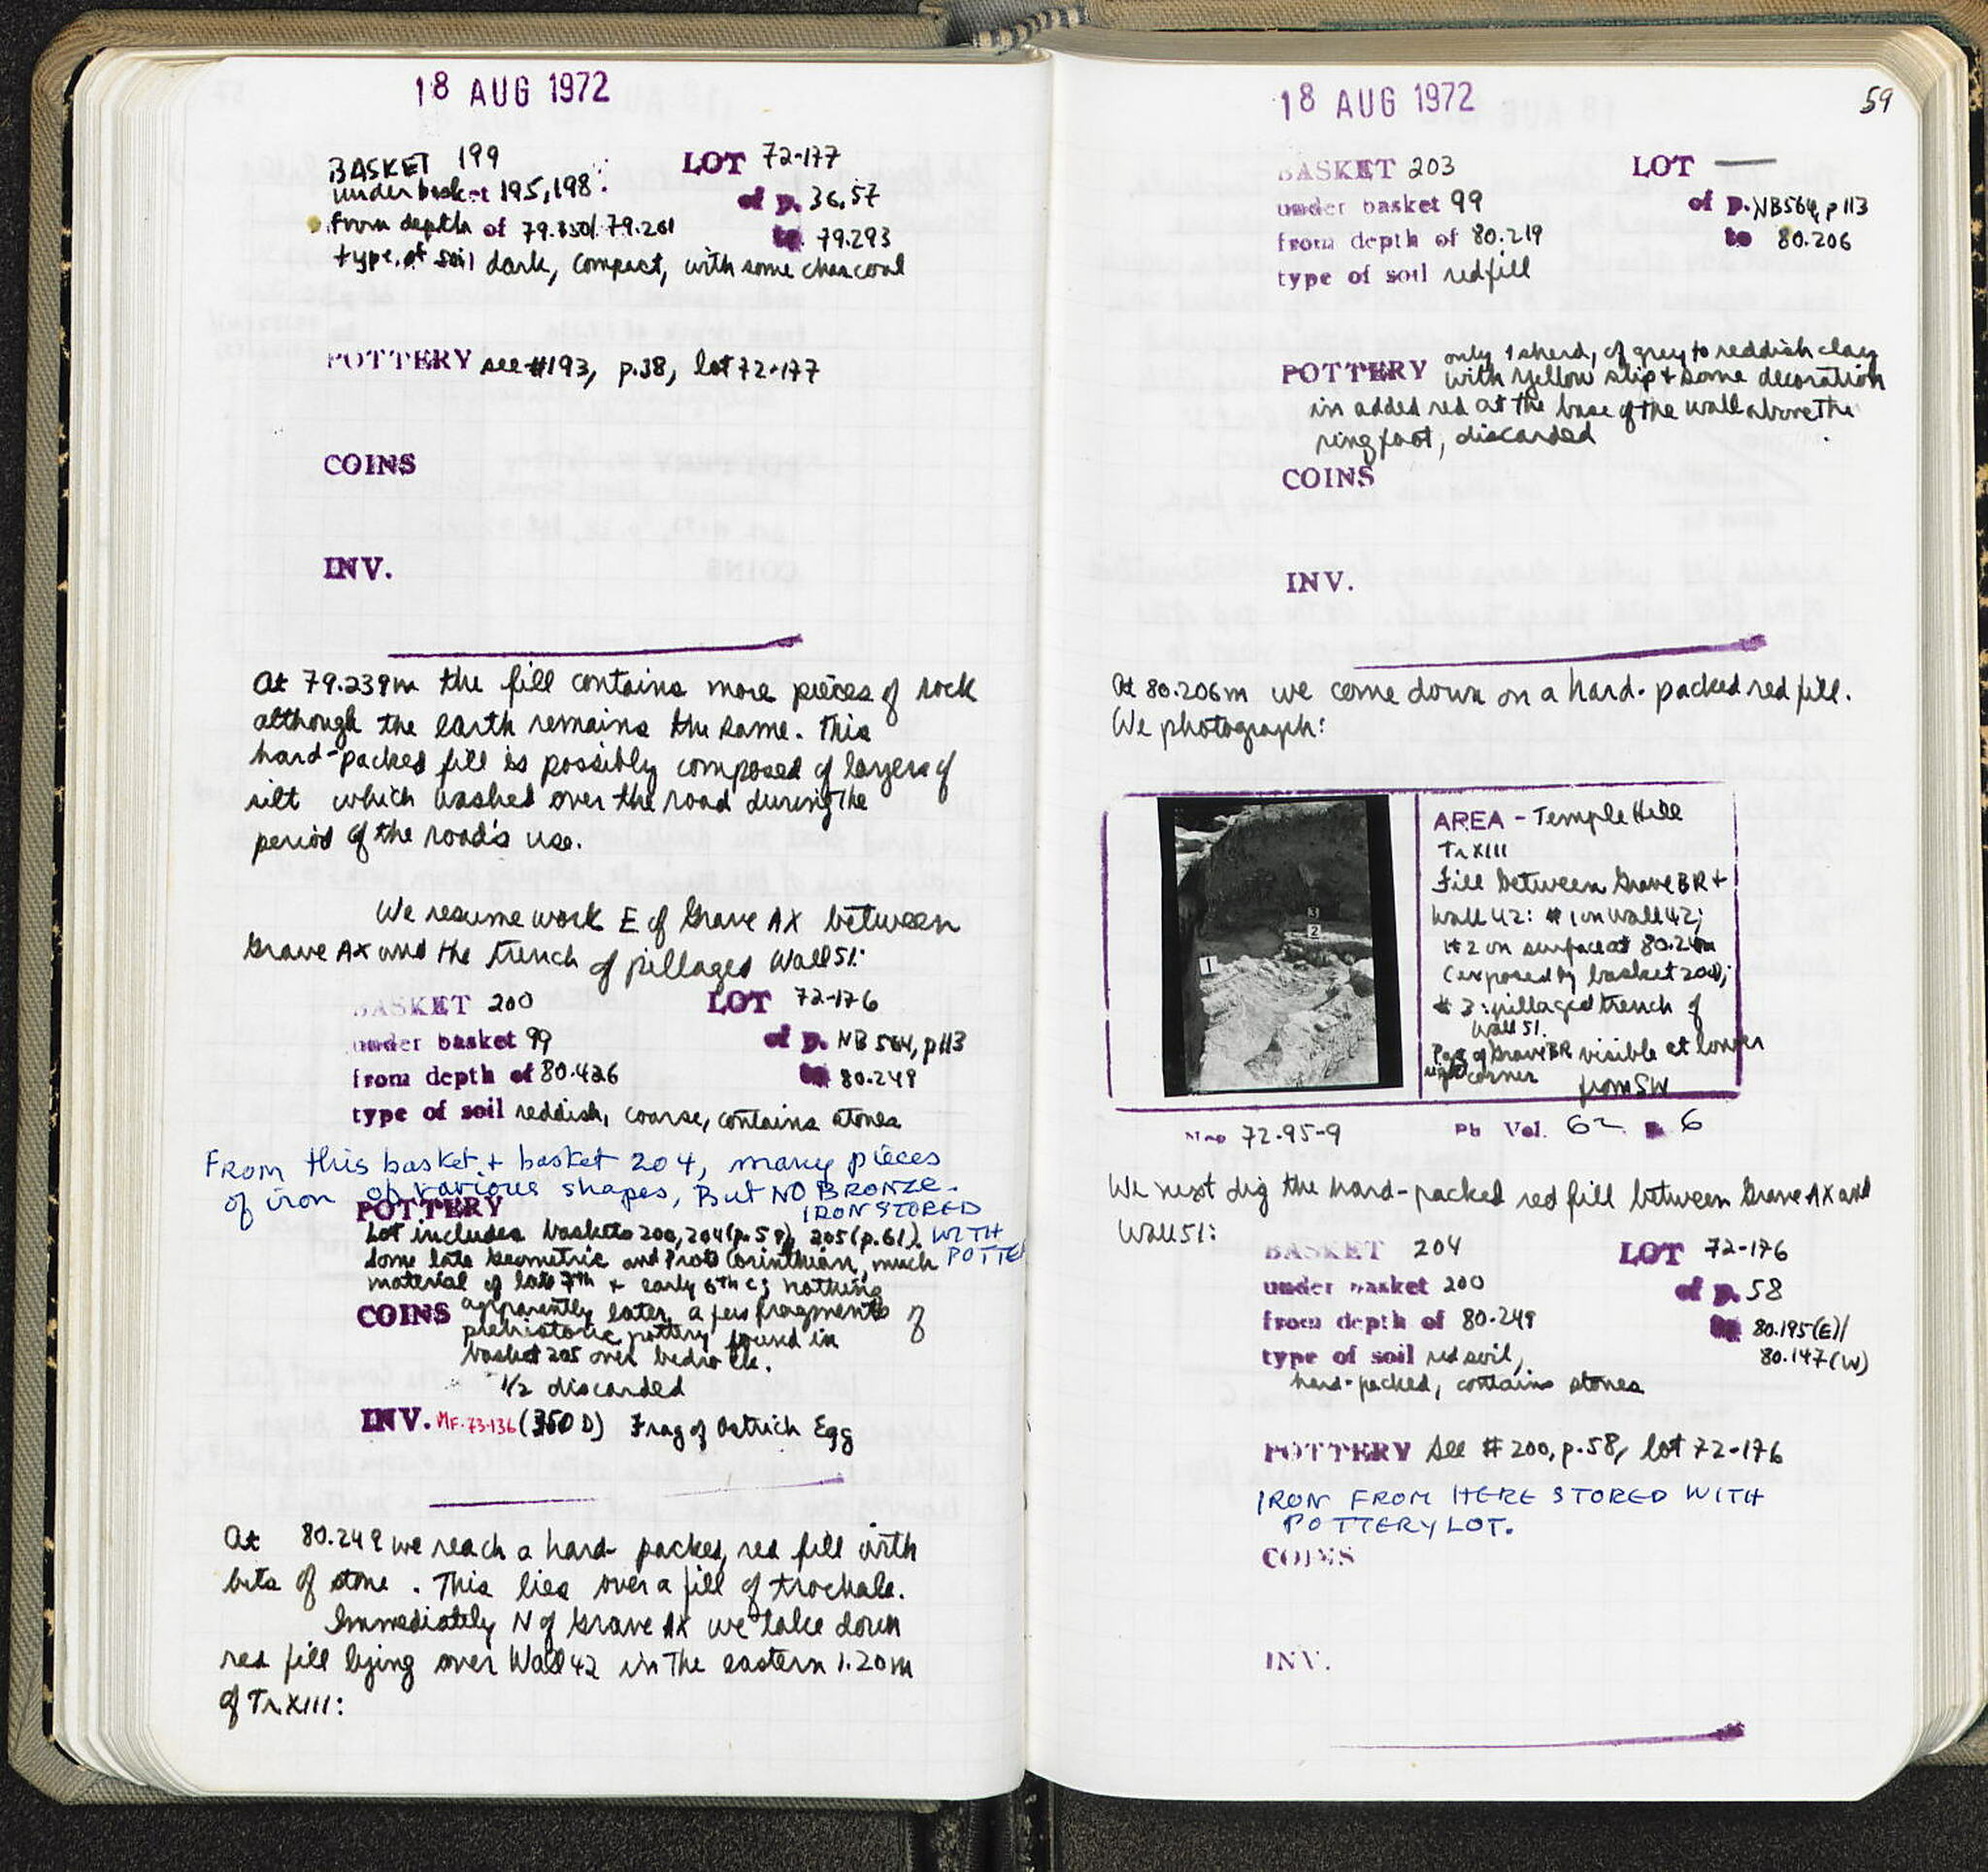 18 AUG 1972
BASKET 199 LOT 72-177
under basket 195, 198 of p. 36, 57
from depth of 79.350/79.261 to 79.293
type of soil dark, compact, with some charcoal
POTTERY see #193, p.38, lot 72-177
COINS
INV.
At 79.239m the fill contains more pieces of rock
although the earth remains the same. This
hard-packed fill is possibly composed of layers of
silt which washed over the road during the
period of the road's use.
We resume work E of Grave AX between
Grave AX and the trench of pillaged Wall 51:
BASKET 200 LOT 72-176
under basket 99 of p. NB 564, p113
from depth of 80.426 to 80.249
type of soil reddish, coarse, contains stones
From this basket + basket 204, many pieces
of iron of various shapes, BUT NO BRONZE.
IRON STORED
WITH
POTTE
POTTERY
Lot includes baskets 200, 204 (p.59), 205 (p.61).
Some late Geometric and Proto Corinthian, much
material of late 7th + early 6th c; nothing
COINS apparently later, a few fragments of
prehistoric pottery found in
basket 205 over bedrock.
1/2 discarded
INV. MF-73-136 (350 D) Frag of Ostrich Egg
At 80.249 we reach a hard-packed, red fill with
bits of stone. This lies over a fill of trochala.
Immediately N of Grave AX we take down
red fill lying over Wall 42 in the eastern 1.20m
of Tr XIII:
18 AUG 1972
59
BASKET 203 LOT —
under basket 99 of p. NB564, p113
from depth of 80.219 to 80.206
type of soil red fill
POTTERY only 1 sherd, of grey to reddish clay
with yellow slip + some decoration
in added red at the base of the wall above the
ring foot, discarded
COINS
INV.
At 80.206m we come down on a hard-packed red fill.
We photograph:
3
2
1
AREA - Temple Hill
Tr XIII
Fill between Grave BR +
Wall 42: #1 on wall 42;
#2 on surface at 80.24m
(exposed by basket 200);
#3: pillaged trench of
Wall 51.
Part of Grave BR visible at lower
right corner from SW
72-95-9 Ph Vol. 62 p. 6
We next dig the hard-packed red fill between Grave AX and
Wall 51:
BASKET 204 LOT 72-176
under basket 200 of p. 58
from depth of 80.249 to 80.195(E)/
type of soil red soil, 80.147(W)
hard-packed, contains stones
POTTERY see #200, p.58, lot 72-176
IRON FROM HERE STORED WITH
POTTERY LOT.
COINS
INV.